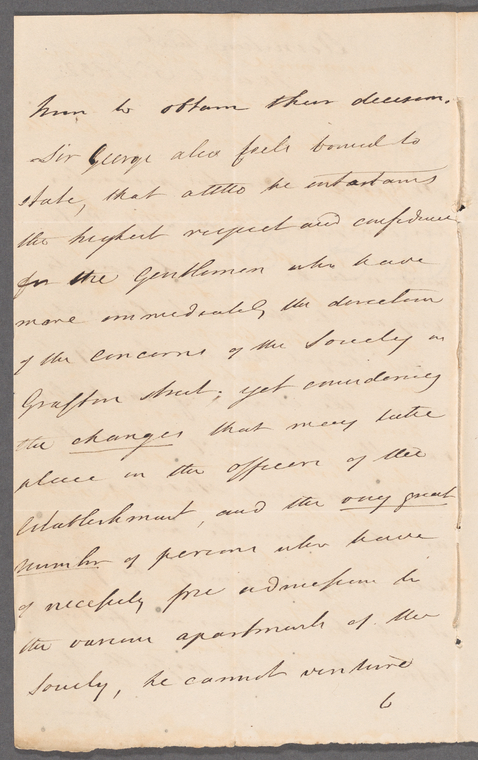 them to obtain their decision.
Sir George also feels bound to
state, that altho he entertains
the highest respect and confidence
for the Gentlemen who have
more immediately the direction
of the Concerns of the Society in
Grafton Street; yet considering
the changes that may take
place in the officers of the
Establishment, and the very great
number of persons who have
of necessity free admission to
the various apartments of the
Society, he cannot venture
to